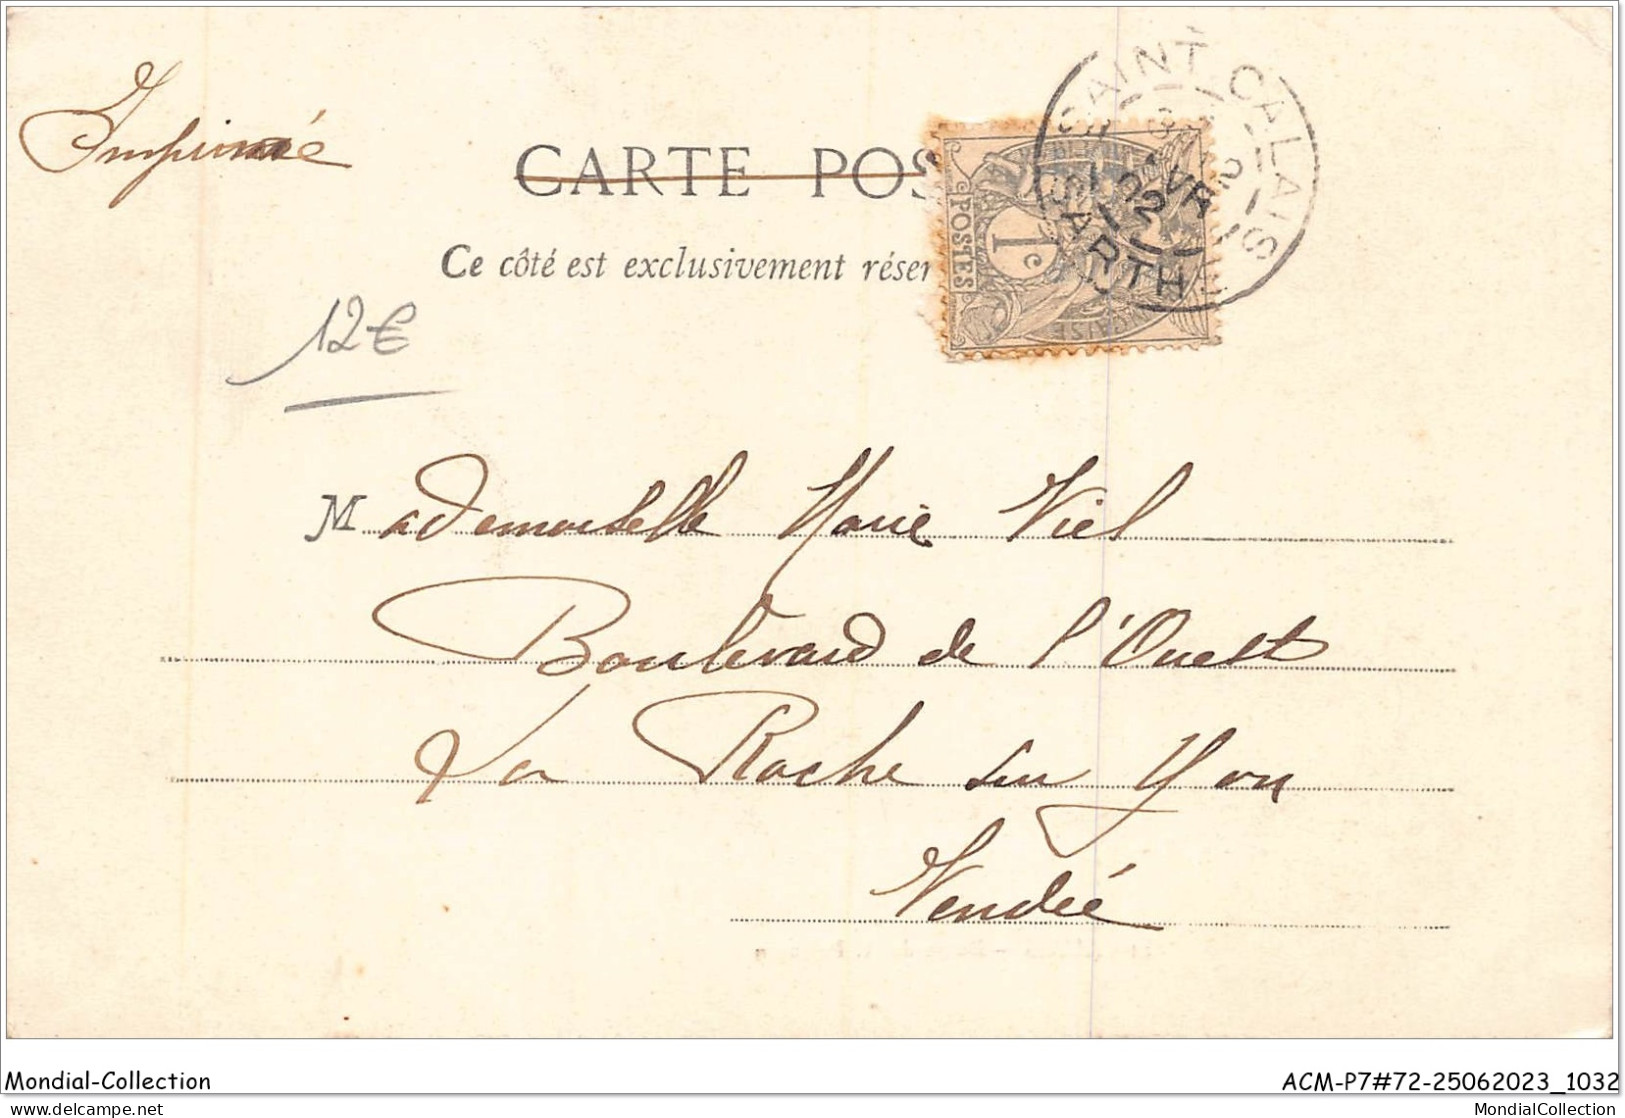 Imprimé
CARTE POS
Ce côté est exclusivement réser
POSTES
1c
SAINT-CALAIS
02
SARTHE
12€
Mademoiselle Marie Viel
Boulevard de l'Ouest
La Roche sur Yon
Vendée
Mondial-Collection
ACM-P7#72-25062023_1032
www.delcampe.net
MondialCollection